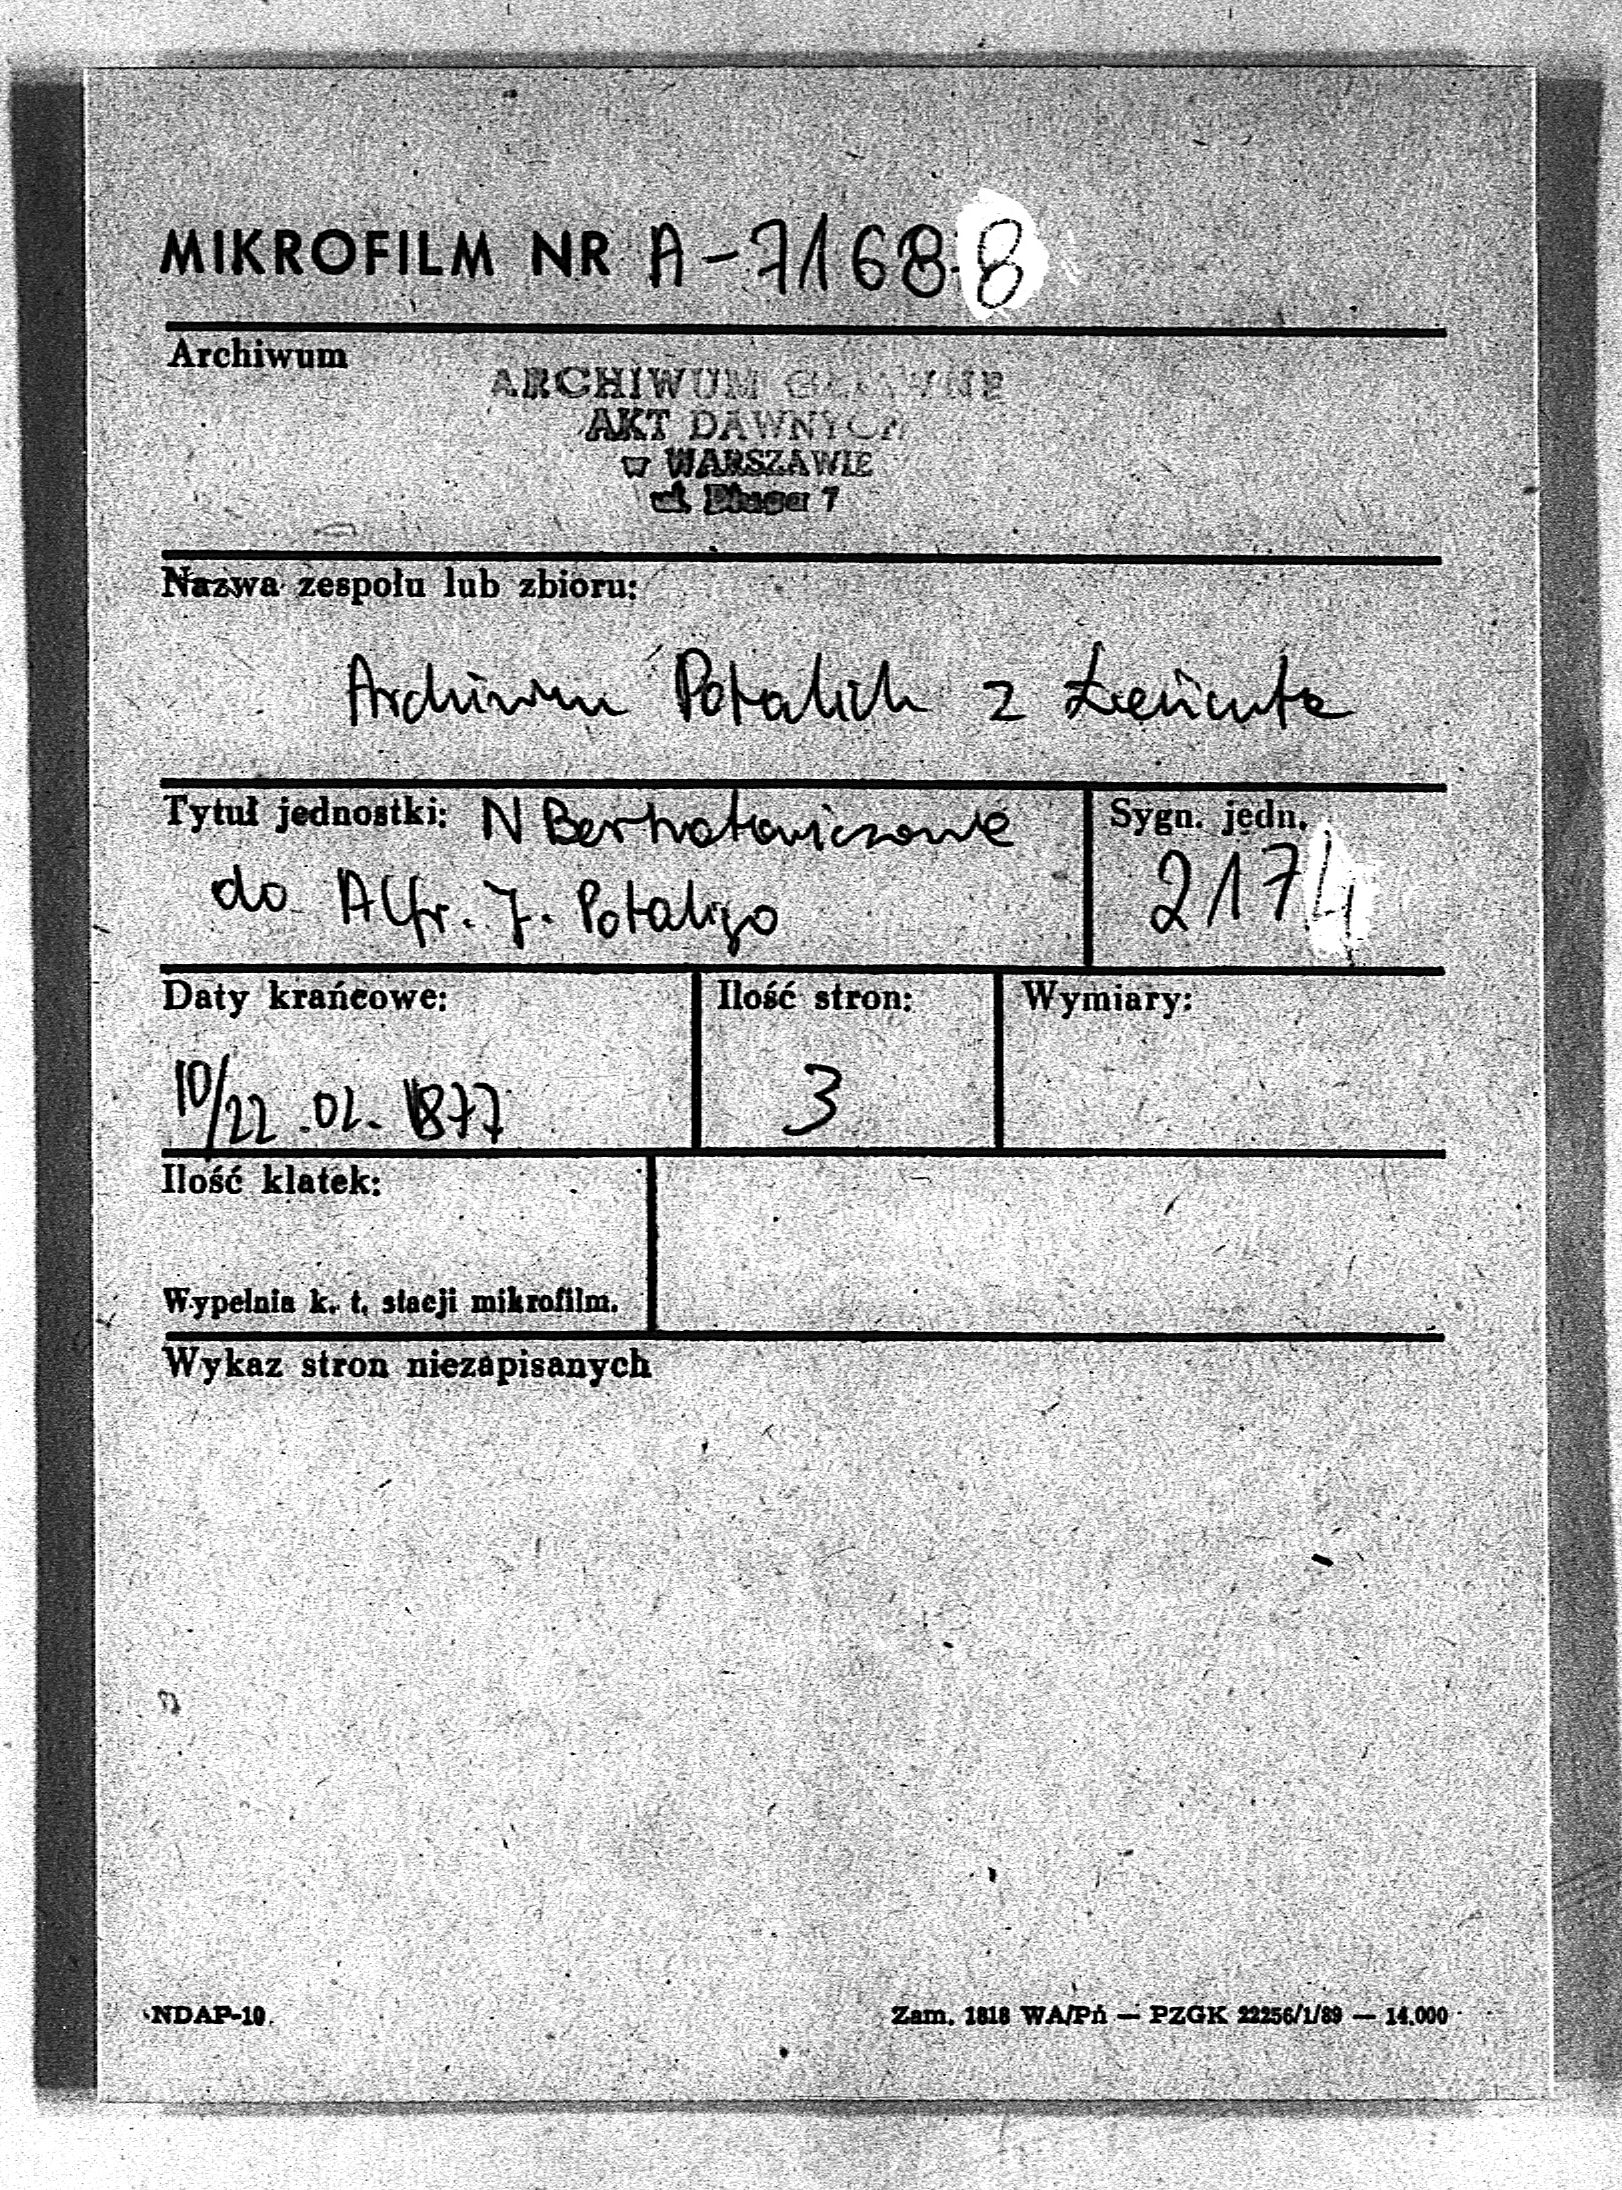 MIKROFILM NR A-71688
Archiwum
ARCHIWUM GŁÓWNE
AKT DAWNYCH
w WARSZAWIE
ul. Długa 7
Nazwa zespołu lub zbioru:
Archiwum Potockich z Łańcuta
Tytuł jednostki: N Bertratowiczowie
do Alfr. J. Potockiego
Sygn. jedn.
2174
Daty krańcowe:
10/22.02.1877
Ilość stron:
3
Wymiary:
Ilość klatek:
Wypełnia k. t. stacji mikrofilm.
Wykaz stron niezapisanych
NDAP-10
Zam. 1818 WA/Pń — PZGK 22256/1/89 — 14.000